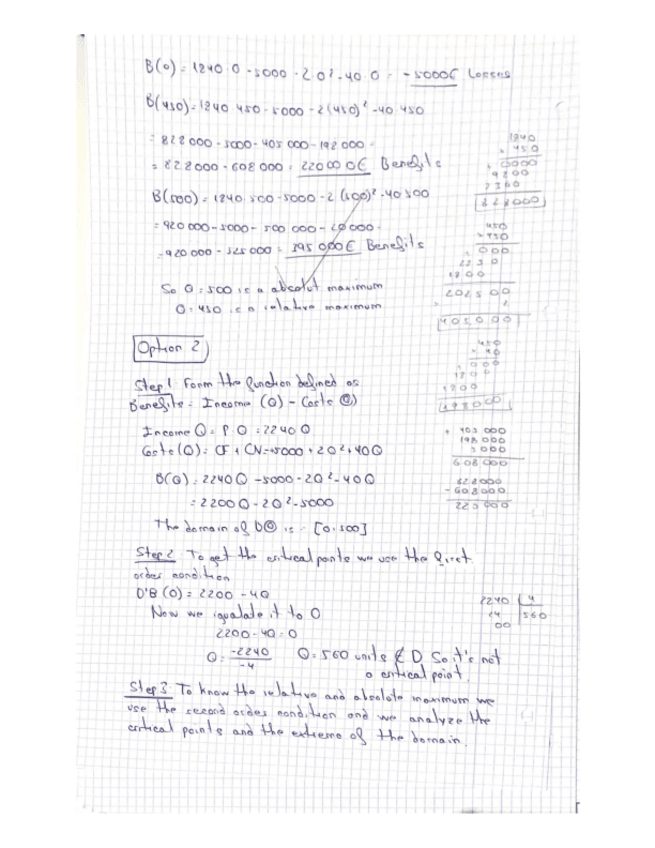 B(0) = 1840·0 - 5000 - 2·0² - 40·0 = -5000€ Losses
B(450) = 1840·450 - 5000 - 2(450)² - 40·450
= 828000 - 5000 - 405000 - 198000 =
= 828000 - 608000 = 220000€ Benefits
B(500) = 1840·500 - 5000 - 2(500)² - 40·500
= 920000 - 5000 - 500000 - 20000 =
= 920000 - 525000 = 395000€ Benefits
So Q = 500 is a absolut maximum
Q = 450 is a relative maximum
Option 2
Step 1 Form the function defined as
Benefits = Income (Q) - Costs (Q)
Income Q = P·Q = 2240Q
Costs (Q) = CF + CV = 5000 + 2Q² + 40Q
B(Q) = 2240Q - 5000 - 2Q² - 40Q
= 2200Q - 2Q² - 5000
The domain of D(Q) is = [0, 500]
Step 2 To get the critical points we use the first
order condition
D'B(Q) = 2200 - 4Q
Now we igualate it to 0
2200 - 4Q = 0
Q = -2240/-4 Q = 560 units ∉ D So it's not
a critical point.
Step 3 To know the relative and absolute maximum we
use the second order condition and we analyze the
critical points and the extreme of the domain.
1840
450
828000
450
202500
2
405000
450
198000
+ 405 000
198 000
5000
608 000
828000
- 608000
220000
2240 4
24 560
00